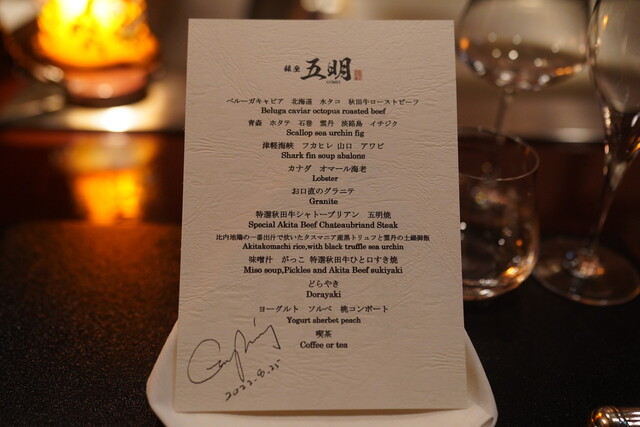 銀座 五明
GOMEI
ベルーガキャビア 北海道 水タコ 秋田牛ローストビーフ
Beluga caviar octopus roasted beef
青森 ホタテ 石巻 雲丹 淡路島 イチジク
Scallop sea urchin fig
津軽海峡 フカヒレ 山口 アワビ
Shark fin soup abalone
カナダ オマール海老
Lobster
お口直のグラニテ
Granite
特選秋田牛シャトーブリアン 五明焼
Special Akita Beef Chateaubriand Steak
比内地鶏の一番出汁で炊いたタスマニア産黒トリュフと雲丹の土鍋御飯
Akitakomachi rice,with black truffle sea urchin
味噌汁 がっこ 特選秋田牛ひと口すき焼
Miso soup,Pickles and Akita Beef sukiyaki
どらやき
Dorayaki
ヨーグルト ソルベ 桃コンポート
Yogurt sherbet peach
喫茶
Coffee or tea
2022.8.25